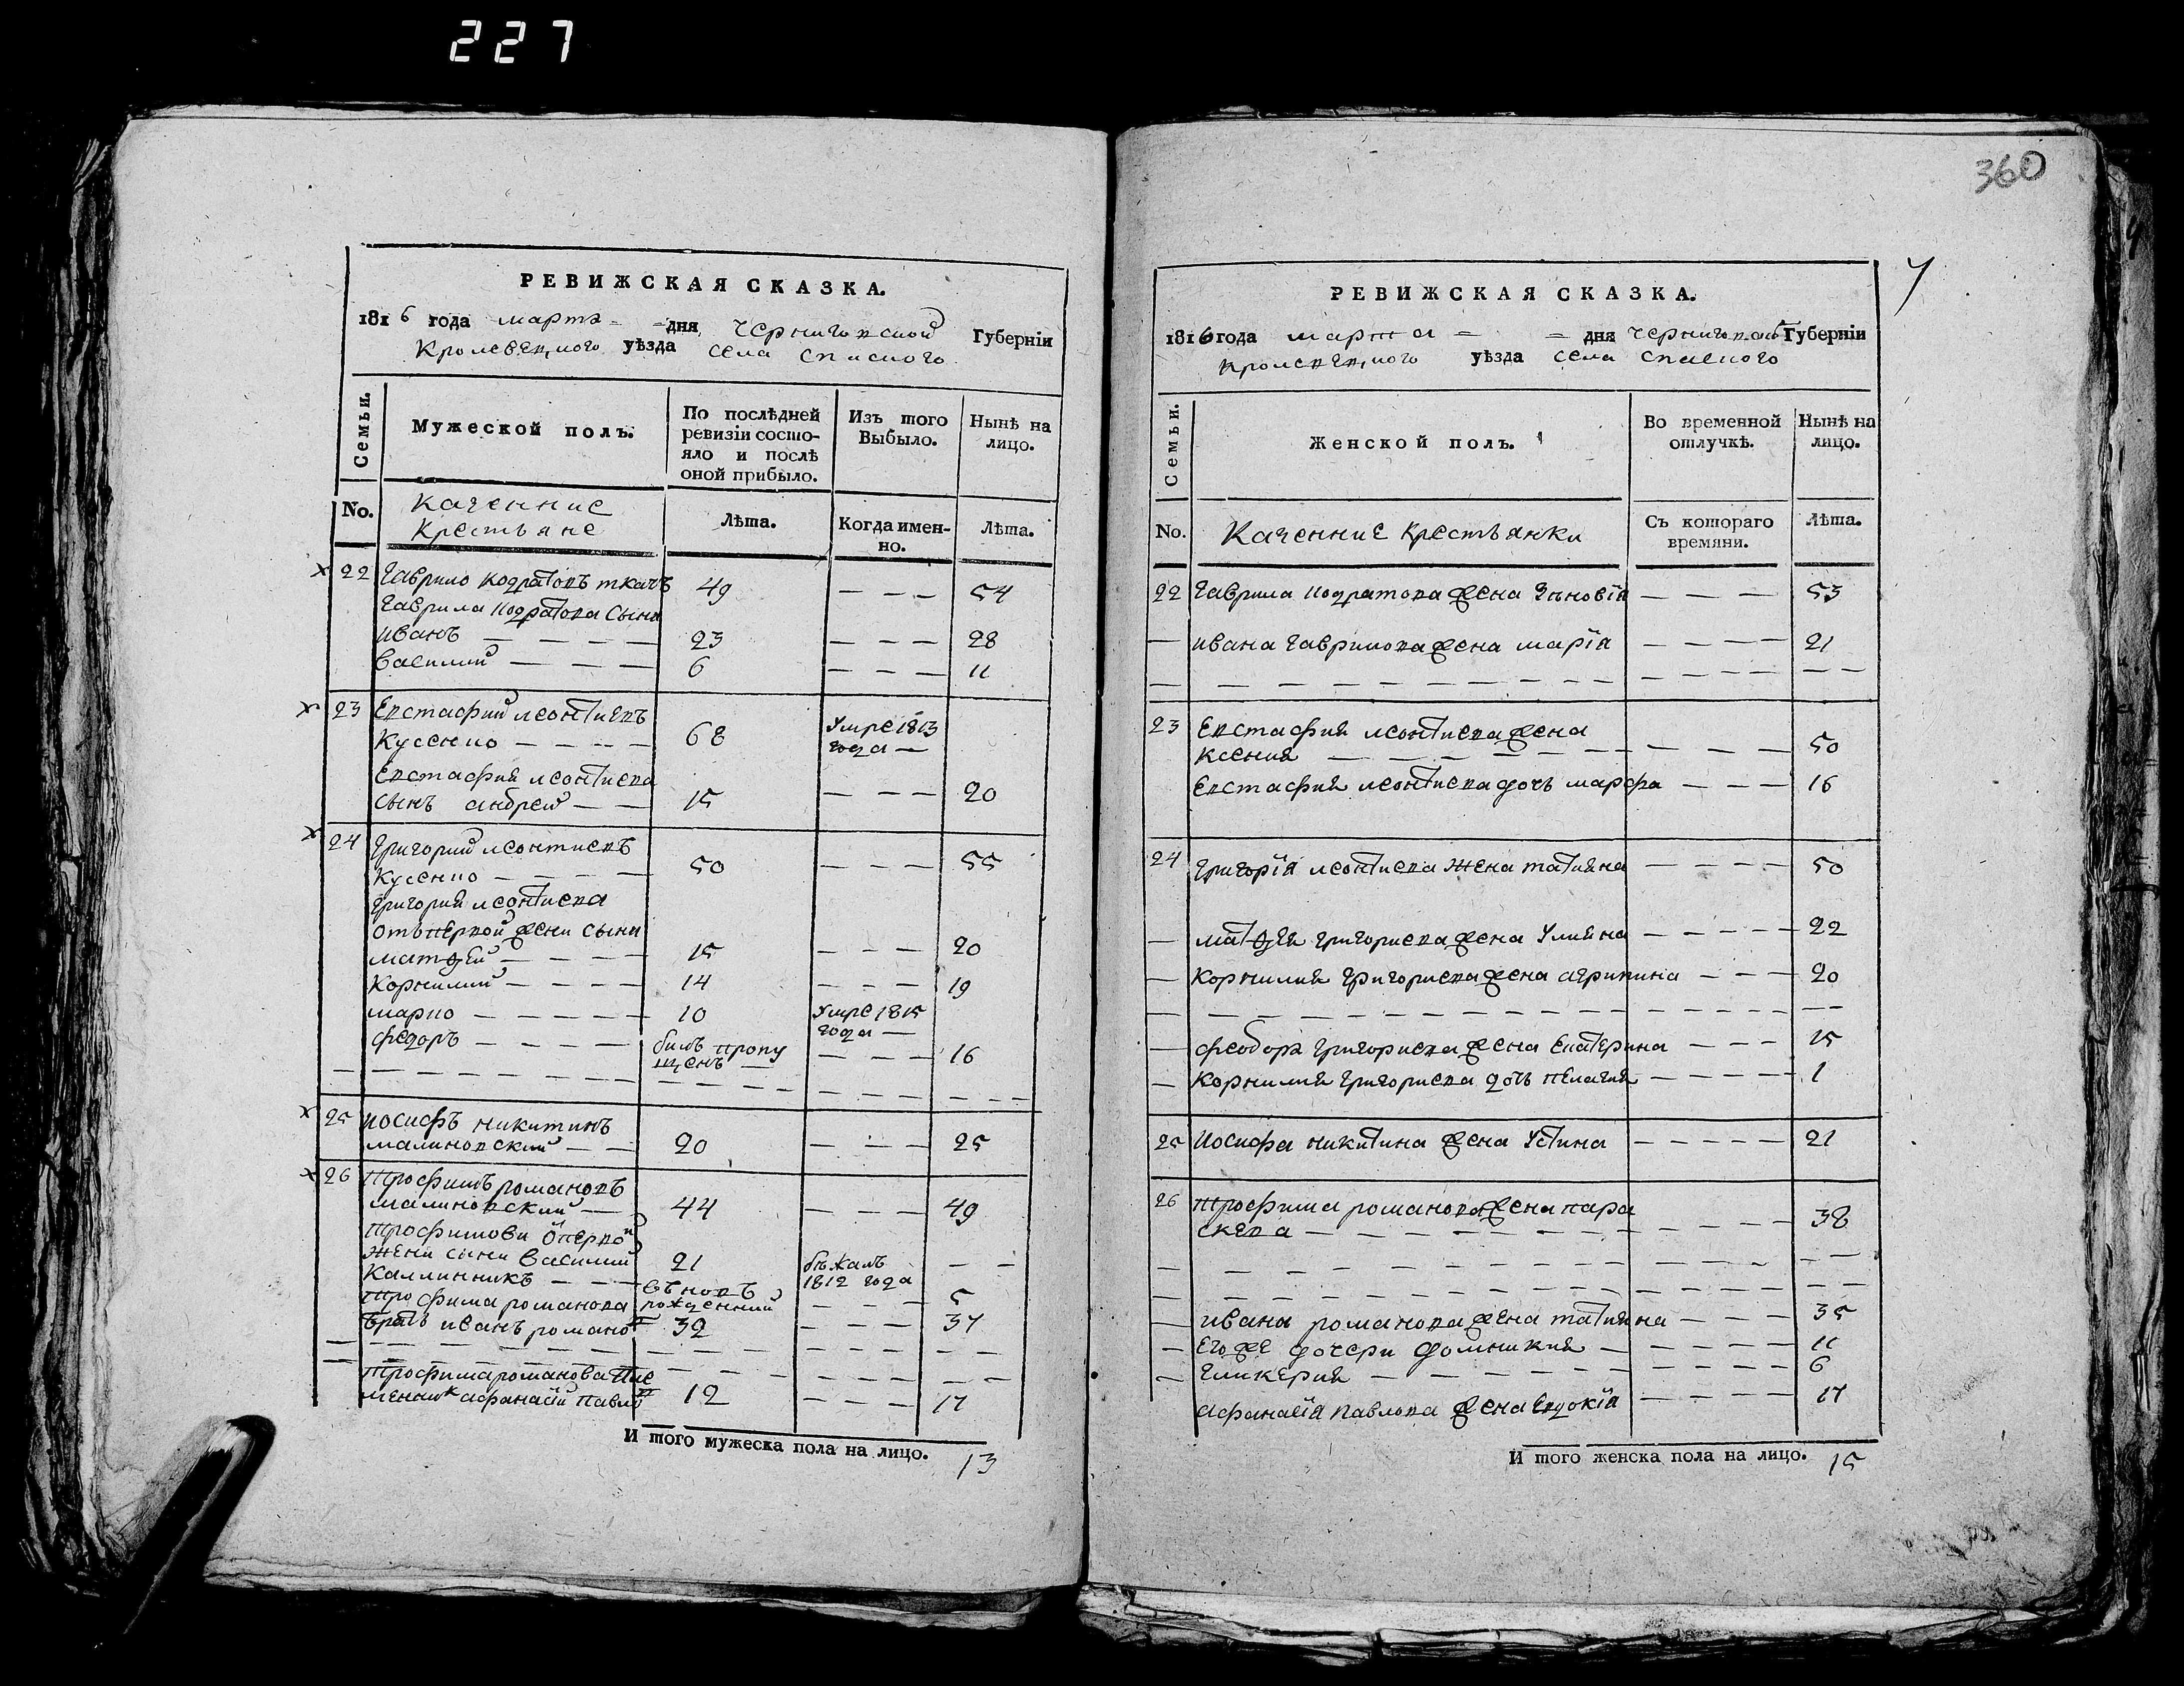 227
360
7
РЕВИЖСКАЯ СКАЗКА.
1816 года марта = = дня Черниговской Губерніи
Кролевецкого уѣзда села Спаского
Семьи.
Мужеской полъ.
По послѣдней ревизіи состояло и послѣ оной прибыло.
Изъ того Выбыло.
Нынѣ на лицо.
No.
Казенние
Крестьяне
Лѣта.
Когда именно.
Лѣта.
22 Гаврило Кодратовъ ткачъ 49 — — — 54
Гаврила Кодратова сыни
Иванъ — — — — 23 — — — 28
Василий — — — 6 — — — 11
23 Евстафий Леонтиевъ
Куценко — — — — 68 Умре 1813 года —
Евстафия Леонтиева
сынъ Андрей — — 15 — — — 20
24 Григорий Леонтиевъ
Куценко — — — — 50 — — — 55
Григория Леонтиева
отъ первой жени сыни
Матфей — — — — 15 — — — 20
Корнилий — — — — 14 — — — 19
Марко — — — — — 10 Умре 1815 года —
Федоръ — — — — билъ пропущенъ — — — — 16
25 Иосифъ Никитинъ
Малиновский — — 20 — — — 25
26 Трофимъ Романовъ
Малиновский — 44 — — — 49
Трофимови ѿ первой
жени сини Василий 21 бѣжалъ 1812 года — —
Каллинникъ — — въновъ рожденний — — — 5
Трофима Романова
братъ Иванъ Романов 32 — — — 37
Трофима Романова пле
менник Афанасій Павлов 12 — — — 17
И того мужеска пола на лицо. 13
РЕВИЖСКАЯ СКАЗКА.
1816 года марта = = дня Черниговской Губерніи
Кролевецкого уѣзда села Спаского
Семьи.
Женской полъ.
Во временной отлучкѣ.
Нынѣ на лицо.
No.
Казенние Крестьянки
Съ котораго времяни.
Лѣта.
22 Гаврила Кодратова жена Зѣновія — — — 53
— Ивана Гаврилова жена Марія — — — — 21
23 Евстафия Леонтиева жена
Ксения — — — — — — — — 50
Евстафия Леонтиева дочь Марфа — — — 16
24 Григорія Леонтиева жена Татияна — — — — 50
— Матфея Григориева жена Улияна — — — — — 22
— Корнилия Григориева жена Агрипина — — — 20
— Феодора Григориева жена Екатерина — — — 15
— Корнилия Григориева дочь Пелагия — — — — 1
25 Иосифа Никитина жена Устина — — — — — 21
26 Трофима Романова жена Пара
скева — — — — — — — — — — — 38
— Ивана Романова жена Татияна — — — 35
— Его же дочери Домникия — — — — — 11
— Гликерия — — — — — — — — — — 6
Афанасія Павлова жена Евдокія — — — — 17
И того женска пола на лицо. 15